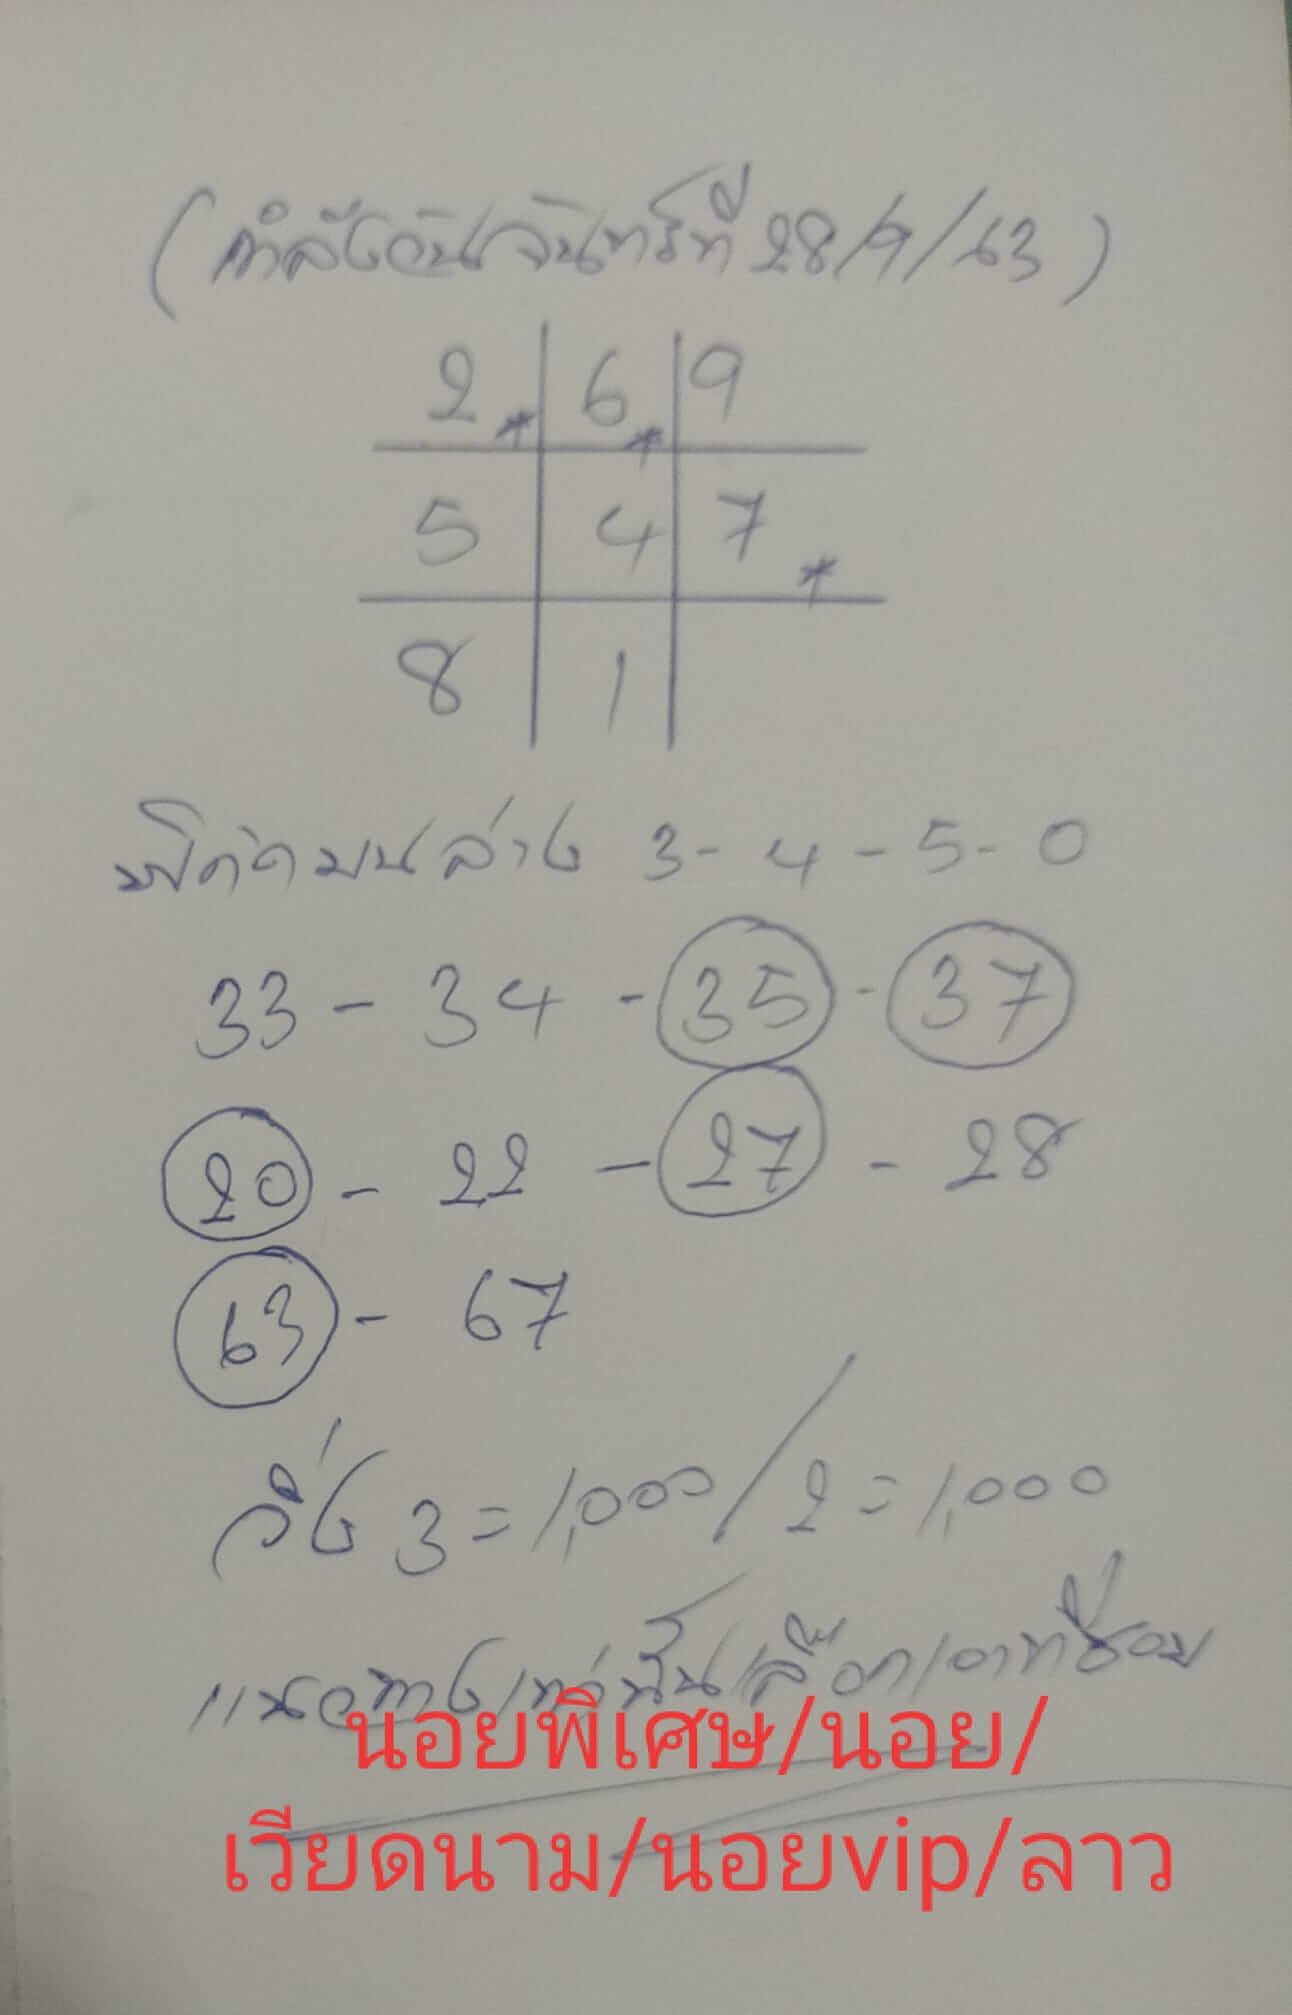 (กำลังวันจันทร์ที่ 28/9/63)
2 * 6 * 9
5 4 7 *
8 1
พิกัดบนล่าง 3 - 4 - 5 - 0
33 - 34 - 35 - 37
20 - 22 - 27 - 28
63 - 67
วิ่ง 3 = 1,000 / 2 = 1,000
แนวทางเท่านั้นเลือกเอาที่ชอบ
นอยพิเศษ/นอย/
เวียดนาม/นอยvip/ลาว